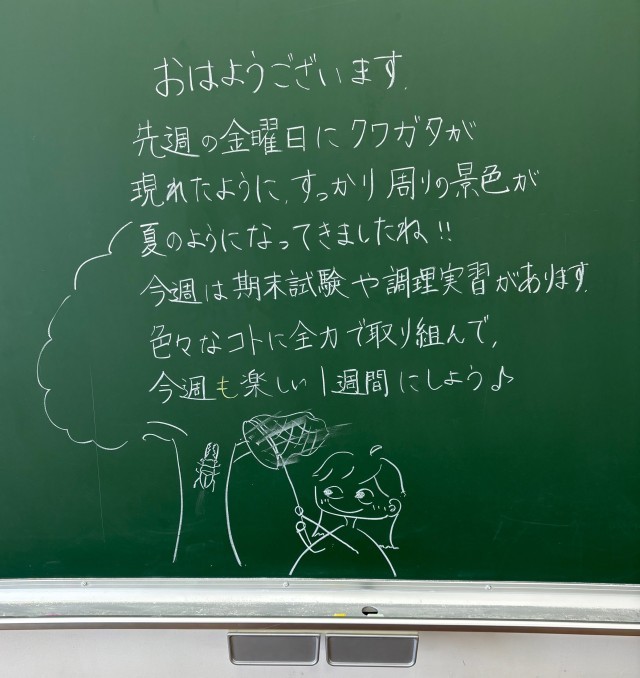 おはようございます.
先週の金曜日にクワガタが
現れたように、すっかり周りの景色が
夏のようになってきましたね!!
今週は期末試験や調理実習があります.
色々なコトに全力で取り組んで、
今週も楽しい1週間にしよう♪